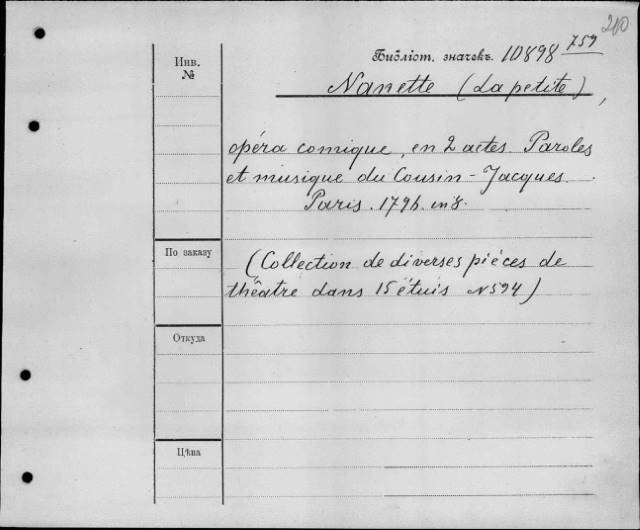 210
Инв. №
Библіот. значекъ. 10898 759
Nanette (La petite),
opéra comique, en 2 actes. Paroles
et musique du Cousin-Jacques.
Paris. 1796. in 8.
По заказу
(Collection de diverses pièces de
théâtre dans 15 étuis N 594)
Откуда
Цѣна